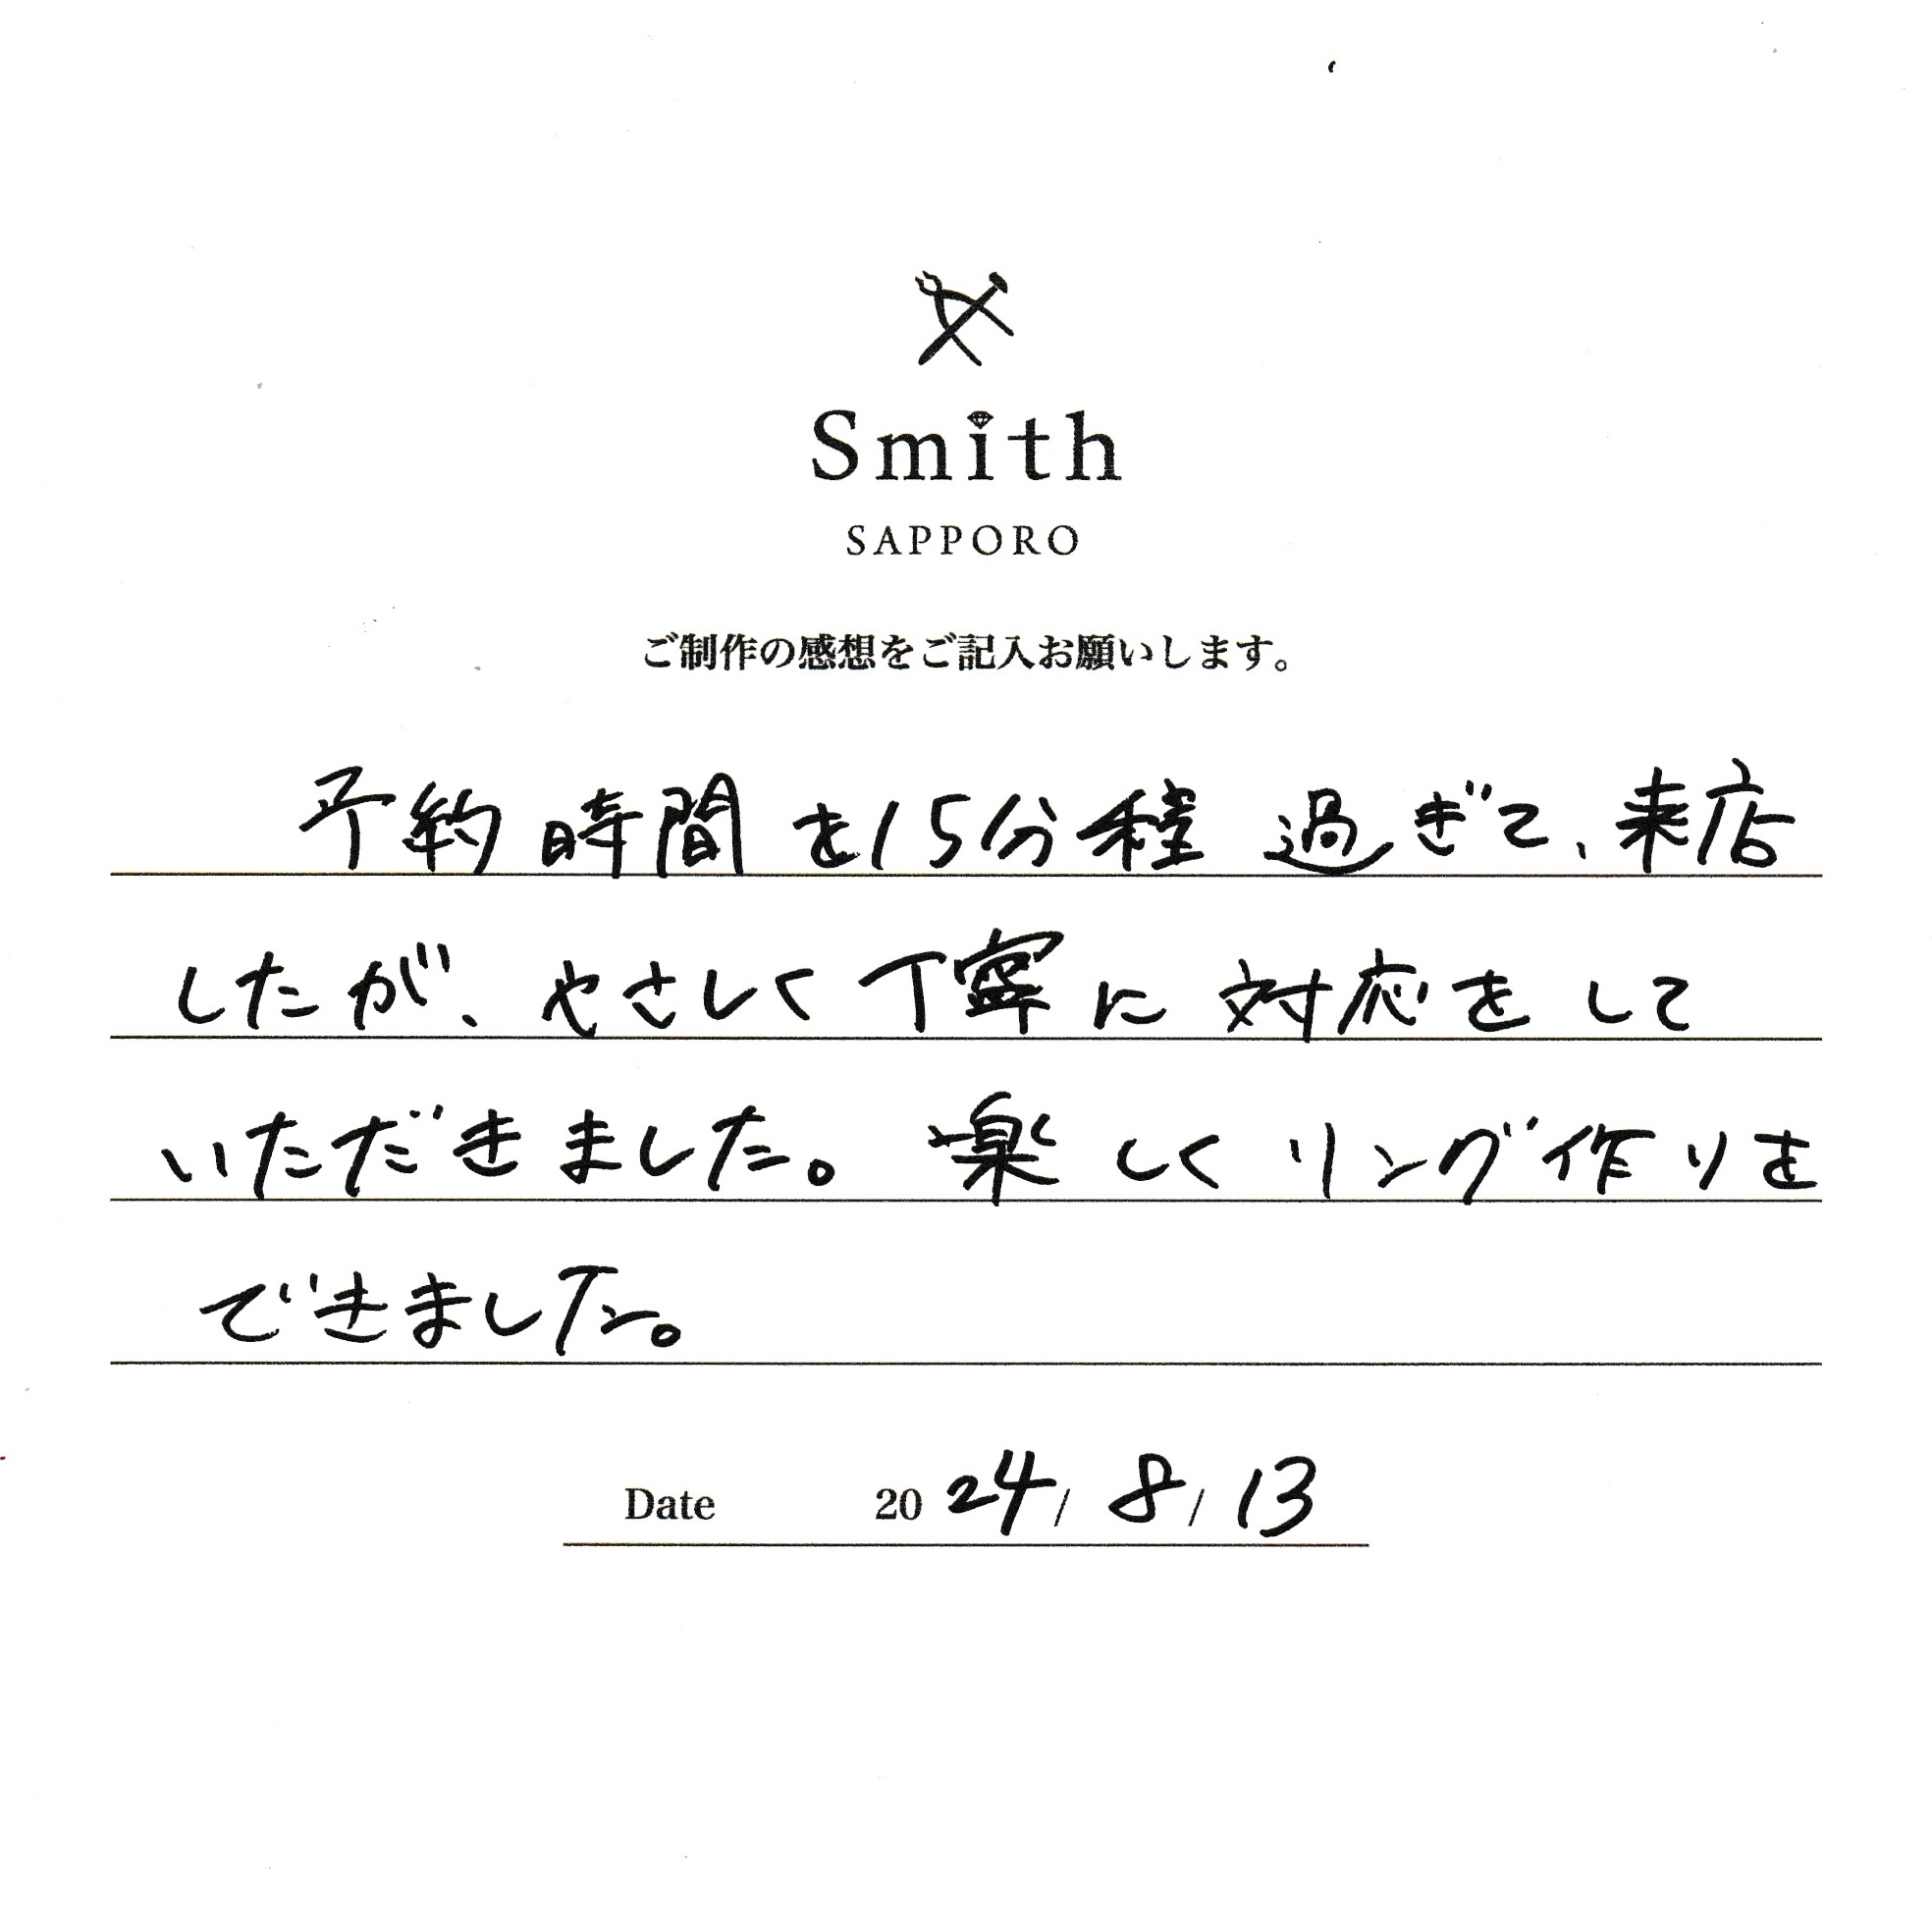 Smith
SAPPORO
ご制作の感想をご記入お願いします。
予約時間を15分程過ぎて、来店
したが、やさしく丁寧に対応をして
いただきました。楽しくリング作りを
できました。
Date 2024/8/13